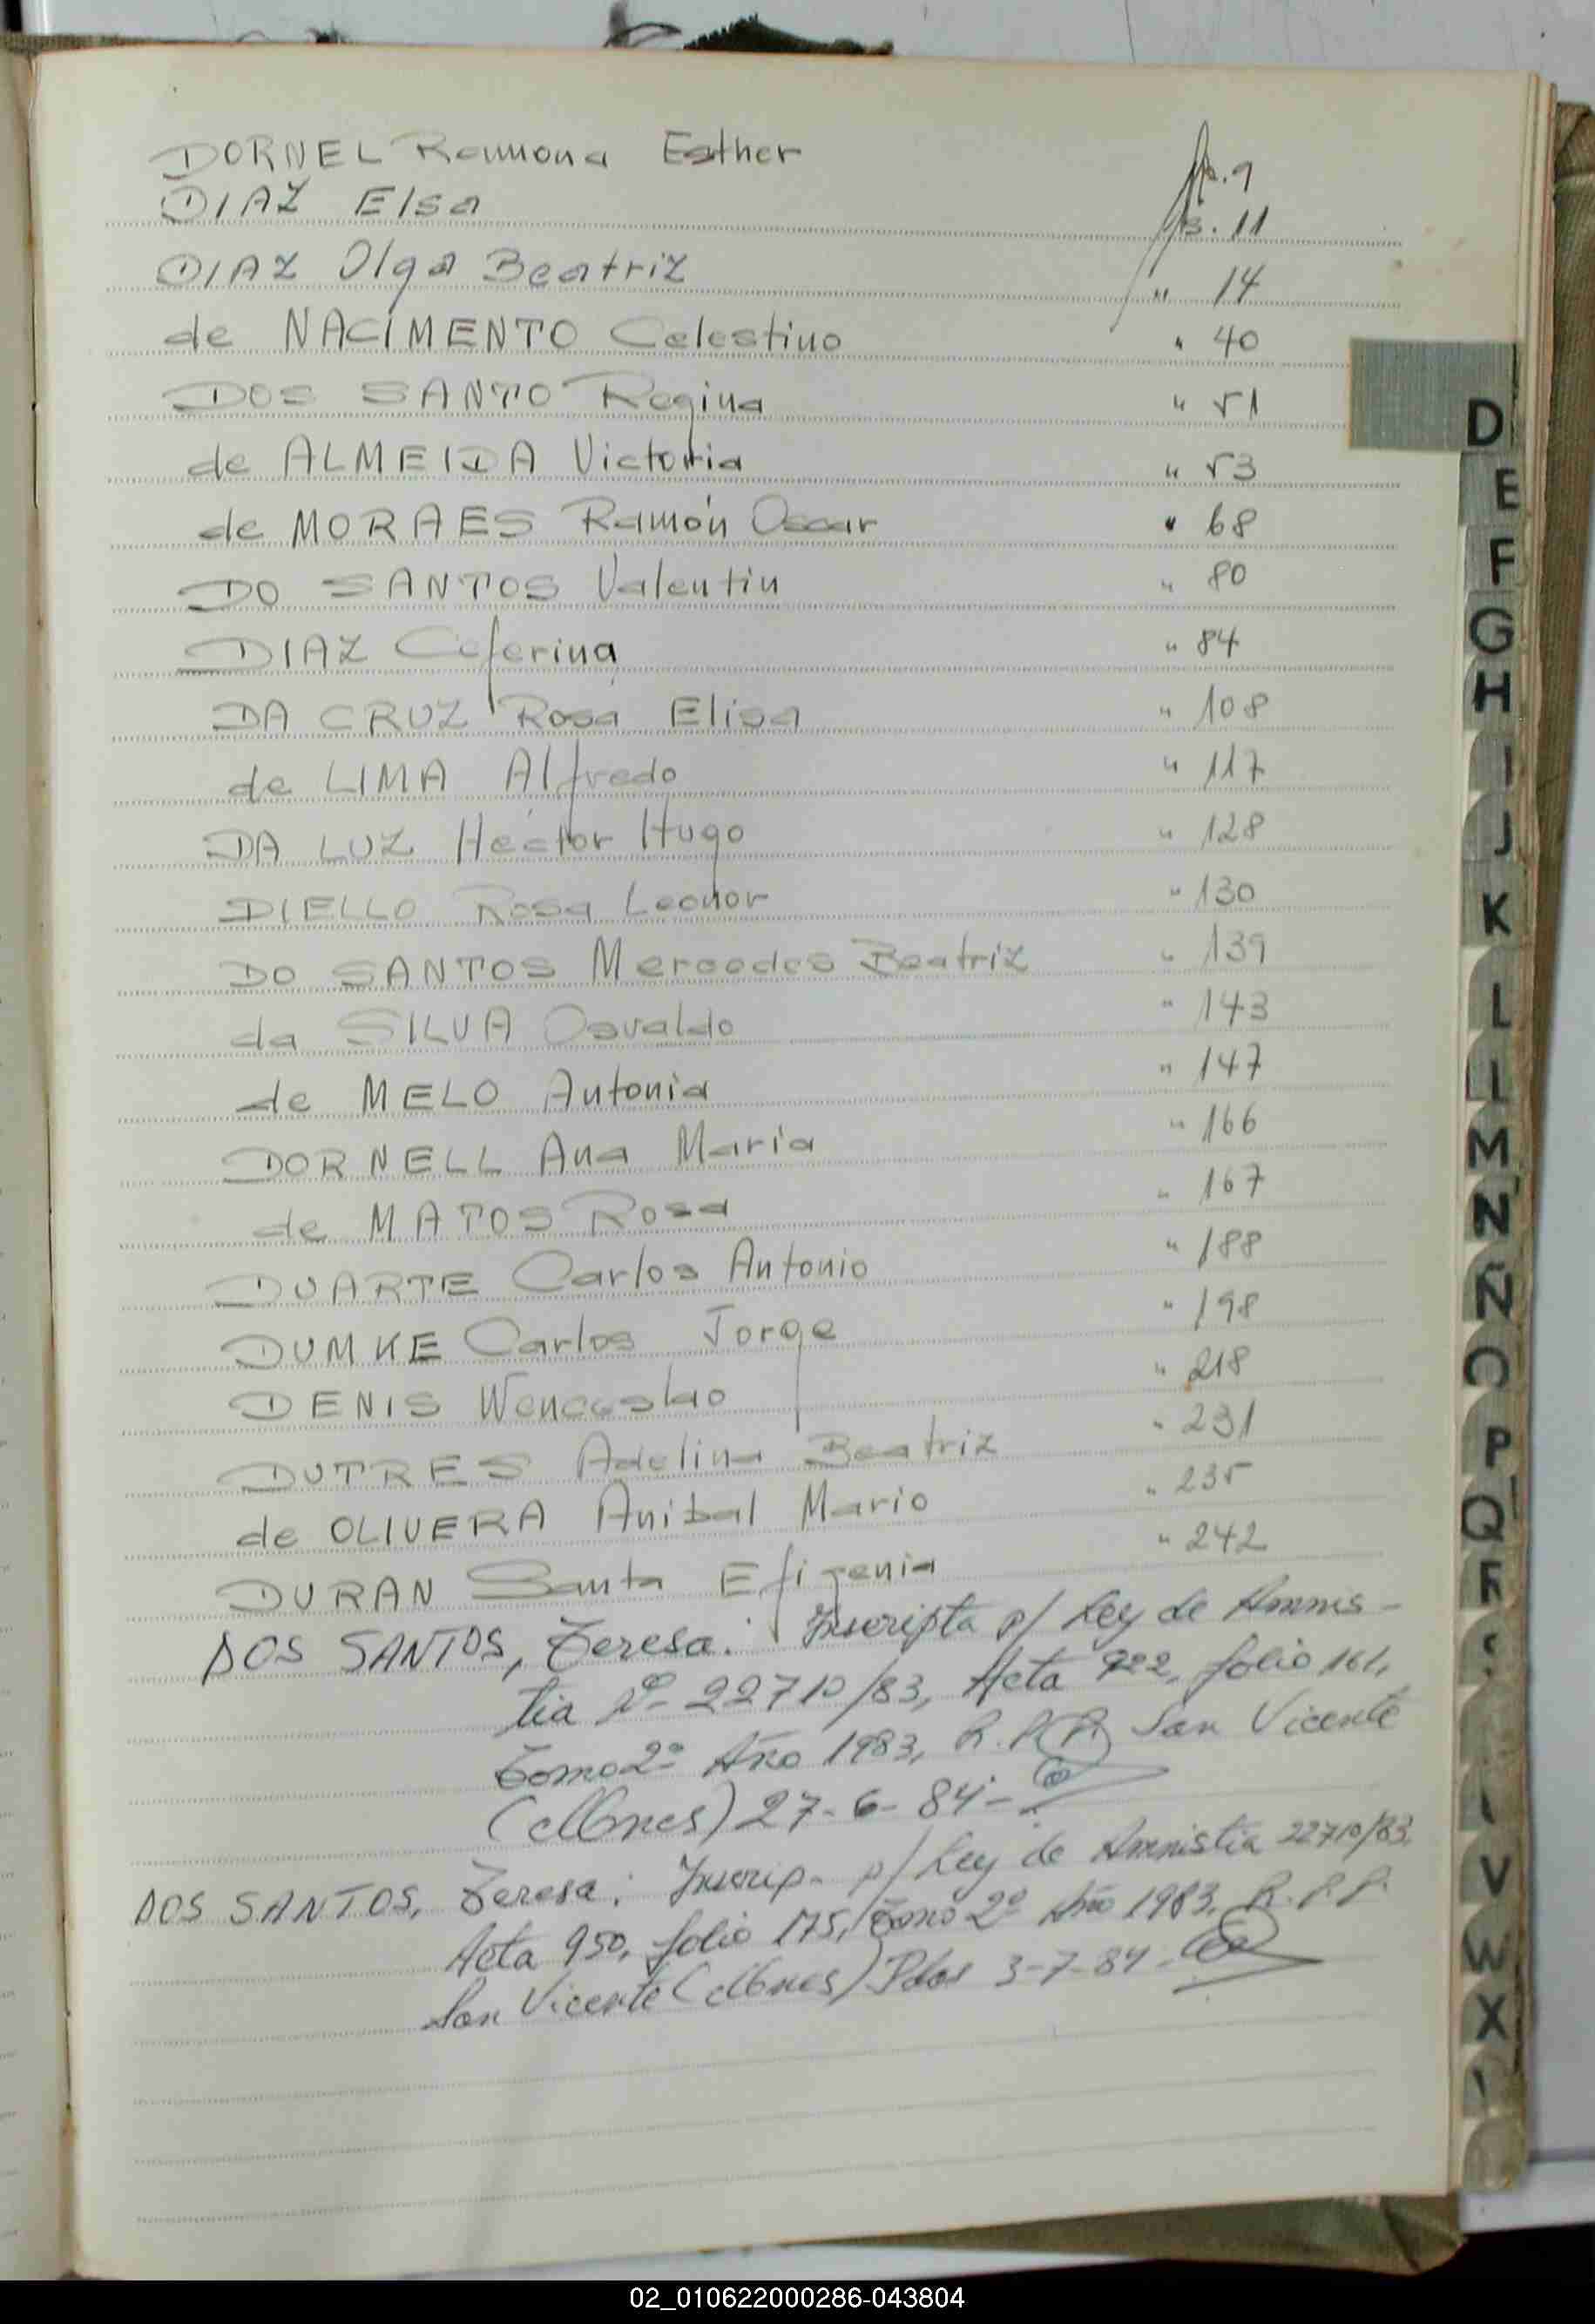 DORNEL Ramona Esther fs. 9
DIAZ Elsa fs. 11
DIAZ Olga Beatriz " 14
de NACIMENTO Celestino " 40
DOS SANTO Regina " 51
de ALMEIDA Victoria " 53
de MORAES Ramón Oscar " 68
DO SANTOS Valentin " 80
DIAZ Ceferina " 84
DA CRUZ Rosa Elisa " 108
de LIMA Alfredo " 117
DA LUZ Héctor Hugo " 128
DIELLO Rosa Leonor " 130
DO SANTOS Mercedes Beatriz " 139
da SILVA Osvaldo " 143
de MELO Antonia " 147
DORNELL Ana Maria " 166
de MATOS Rosa " 167
DUARTE Carlos Antonio " 188
DUMKE Carlos Jorge " 198
DENIS Wenceslao " 218
DUTRES Adelina Beatriz " 231
de OLIVERA Anibal Mario " 235
DURAN Santa Efigenia " 242
DOS SANTOS, Teresa: Inscripta p/ Ley de Amnis-
tia Nº 22710/83, Acta 922, folio 161,
Tomo 2º Año 1983, R.P.P. San Vicente
(Mnes) 27-6-84-
DOS SANTOS, Teresa: Inscrip. p/ Ley de Amnistia 22710/83.
Acta 950, folio 175, Tomo 2º Año 1983, R.P.P.
San Vicente (Mnes) Pdas 3-7-84-
D
E
F
G
H
I
J
K
L
L
M
N
Ñ
O
P
Q
R
V
W
X
02_010622000286-043804